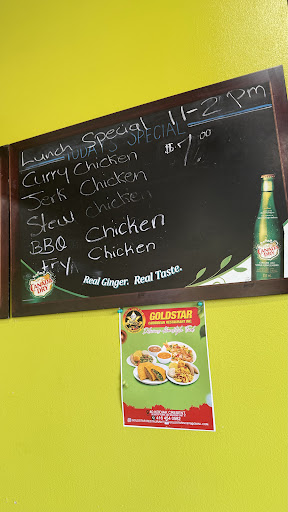 Lunch Special 11-2 pm
TODAY'S SPECIAL
Curry Chicken
Jerk Chicken
Stew Chicken
BBQ Chicken
Chicken
CANADA DRY
Real Ginger. Real Taste.
CANADA DRY
GOLDSTAR
CARIBBEAN RESTAURANT INC.